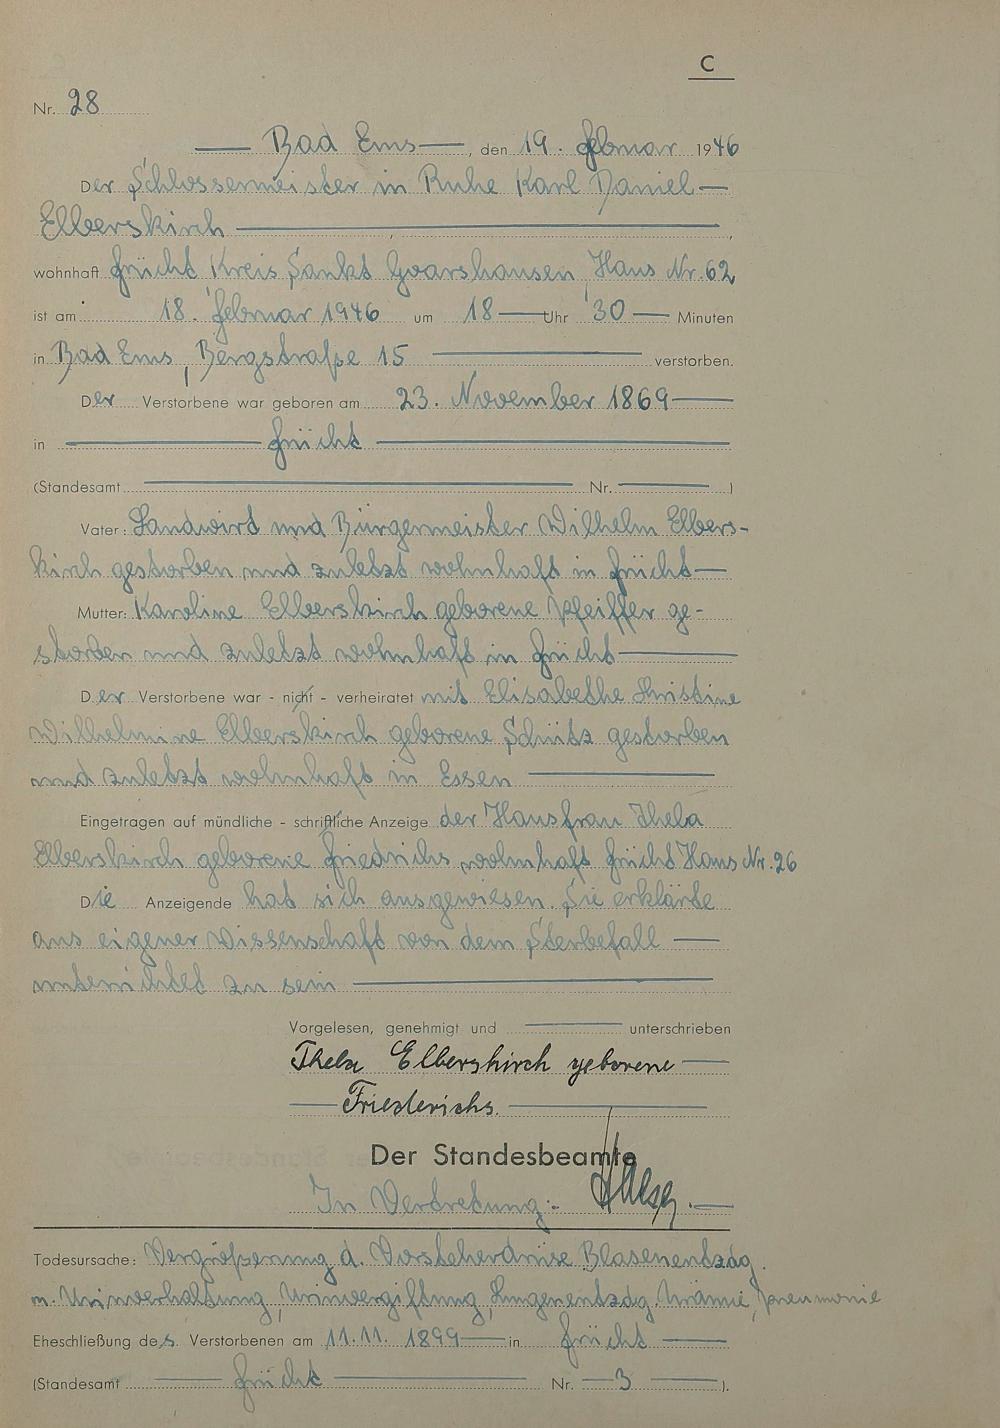 C
Nr. 28
Bad Ems, den 19. Februar 1946
Der Schlossermeister in Ruhe Karl Daniel
Elberskirch,
wohnhaft Frücht Kreis Sankt Goarshausen, Haus Nr. 62
ist am 18. Februar 1946 um 18 Uhr 30 Minuten
in Bad Ems, Bergstraße 15 verstorben.
Der Verstorbene war geboren am 23. November 1869
in Frücht
(Standesamt Nr. )
Vater: Landwirt und Bürgermeister Wilhelm Elbers-
kirch gestorben und zuletzt wohnhaft in Frücht
Mutter: Karoline Elberskirch geborene Pfeiffer ge-
storben und zuletzt wohnhaft in Frücht
Der Verstorbene war - nicht - verheiratet mit Elisabethe Christine
Wilhelmine Elberskirch geborene Schütz gestorben
und zuletzt wohnhaft in Essen
Eingetragen auf mündliche - schriftliche Anzeige der Hausfrau Thela
Elberskirch geborene Friedrichs, wohnhaft Frücht Haus Nr. 26
Die Anzeigende hat sich ausgewiesen. Sie erklärte
aus eigener Wissenschaft von dem Sterbefall
unterrichtet zu sein
Vorgelesen, genehmigt und unterschrieben
Thela Elberskirch geborene
Friederichs.
Der Standesbeamte
In Vertretung:
Todesursache: Vergrößerung d. Vorsteherdrüse Blasenentzdg.
m. Urinverhaltung, Urinvergiftung, Lungenentzdg. Urämie, Pneumonie
Eheschließung des Verstorbenen am 11.11. 1899 in Frücht
(Standesamt Frücht Nr. 3 ).